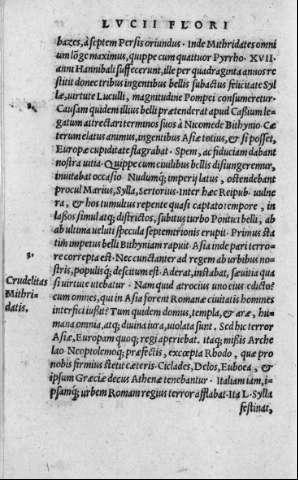 LVCII FLORI
bazes, à septem Persis oriundus. Inde Mithridates omni
um lõge maximus, quippe cum quattuor Pyrrho. XVII.
anni Hannibali suffecerunt, ille per quadraginta annos re
stitit donec tribus ingentibus bellis subactus felicitate Syl
læ, uirtute Luculli, magnitudine Pompei consumeretur.
Causam quidem illius belli prætenderat apud Cassium le-
gatum attrectari terminos suos à Nicomede Bithynio. Cæ
terum elatus animus, ingentibus Asiæ totius, & si posset,
Europæ cupiditate flagrabat. Spem, ac fiduciam dabant
nostra uitia. Quippe cum ciuilibus bellis disiungeremur,
inuitabat occasio. Nudumq; imperij latus, ostendebant
procul Marius, Sylla, Sertorius. Inter hæc Reipub. uulne
ra, & hos tumultus repente quasi captato tempore, in
lassos simul atq; districtos, subitus turbo Pontici belli, ab
ab ultima ueluti specula septemtrionis erupit. Primus sta
tim impetus belli Bithyniam rapuit. Asia inde pari terro-
3.
re correpta est. Nec cunctanter ad regem ab urbibus no-
stris, populisq; descitum est. Aderat, instabat, sæuitia qua
Crudelitas
Mithri-
datis.
si uirtute utebatur. Nam quid atrocius uno eius edicto?
cum omnes, qui in Asia forent Romanæ ciuitatis homines
interfici iussit? Tum quidem domus, templa, & aræ, hu-
mana omnia, atq; diuina iura, uiolata sunt. Sed hic terror
Asiæ, Europam quoq; regi aperiebat. itaq; missis Arche
lao Neoptolemoq; præfectis, excœpta Rhodo, quæ pro
nobis firmius stetit cæteris. Ciclades, Delos, Euboea, &
ipsum Græciæ decus Athenæ tenebantur. Italiam iam, i-
psamq; urbem Romam regius terror afflabat. Ita L. Sylla
festinat,